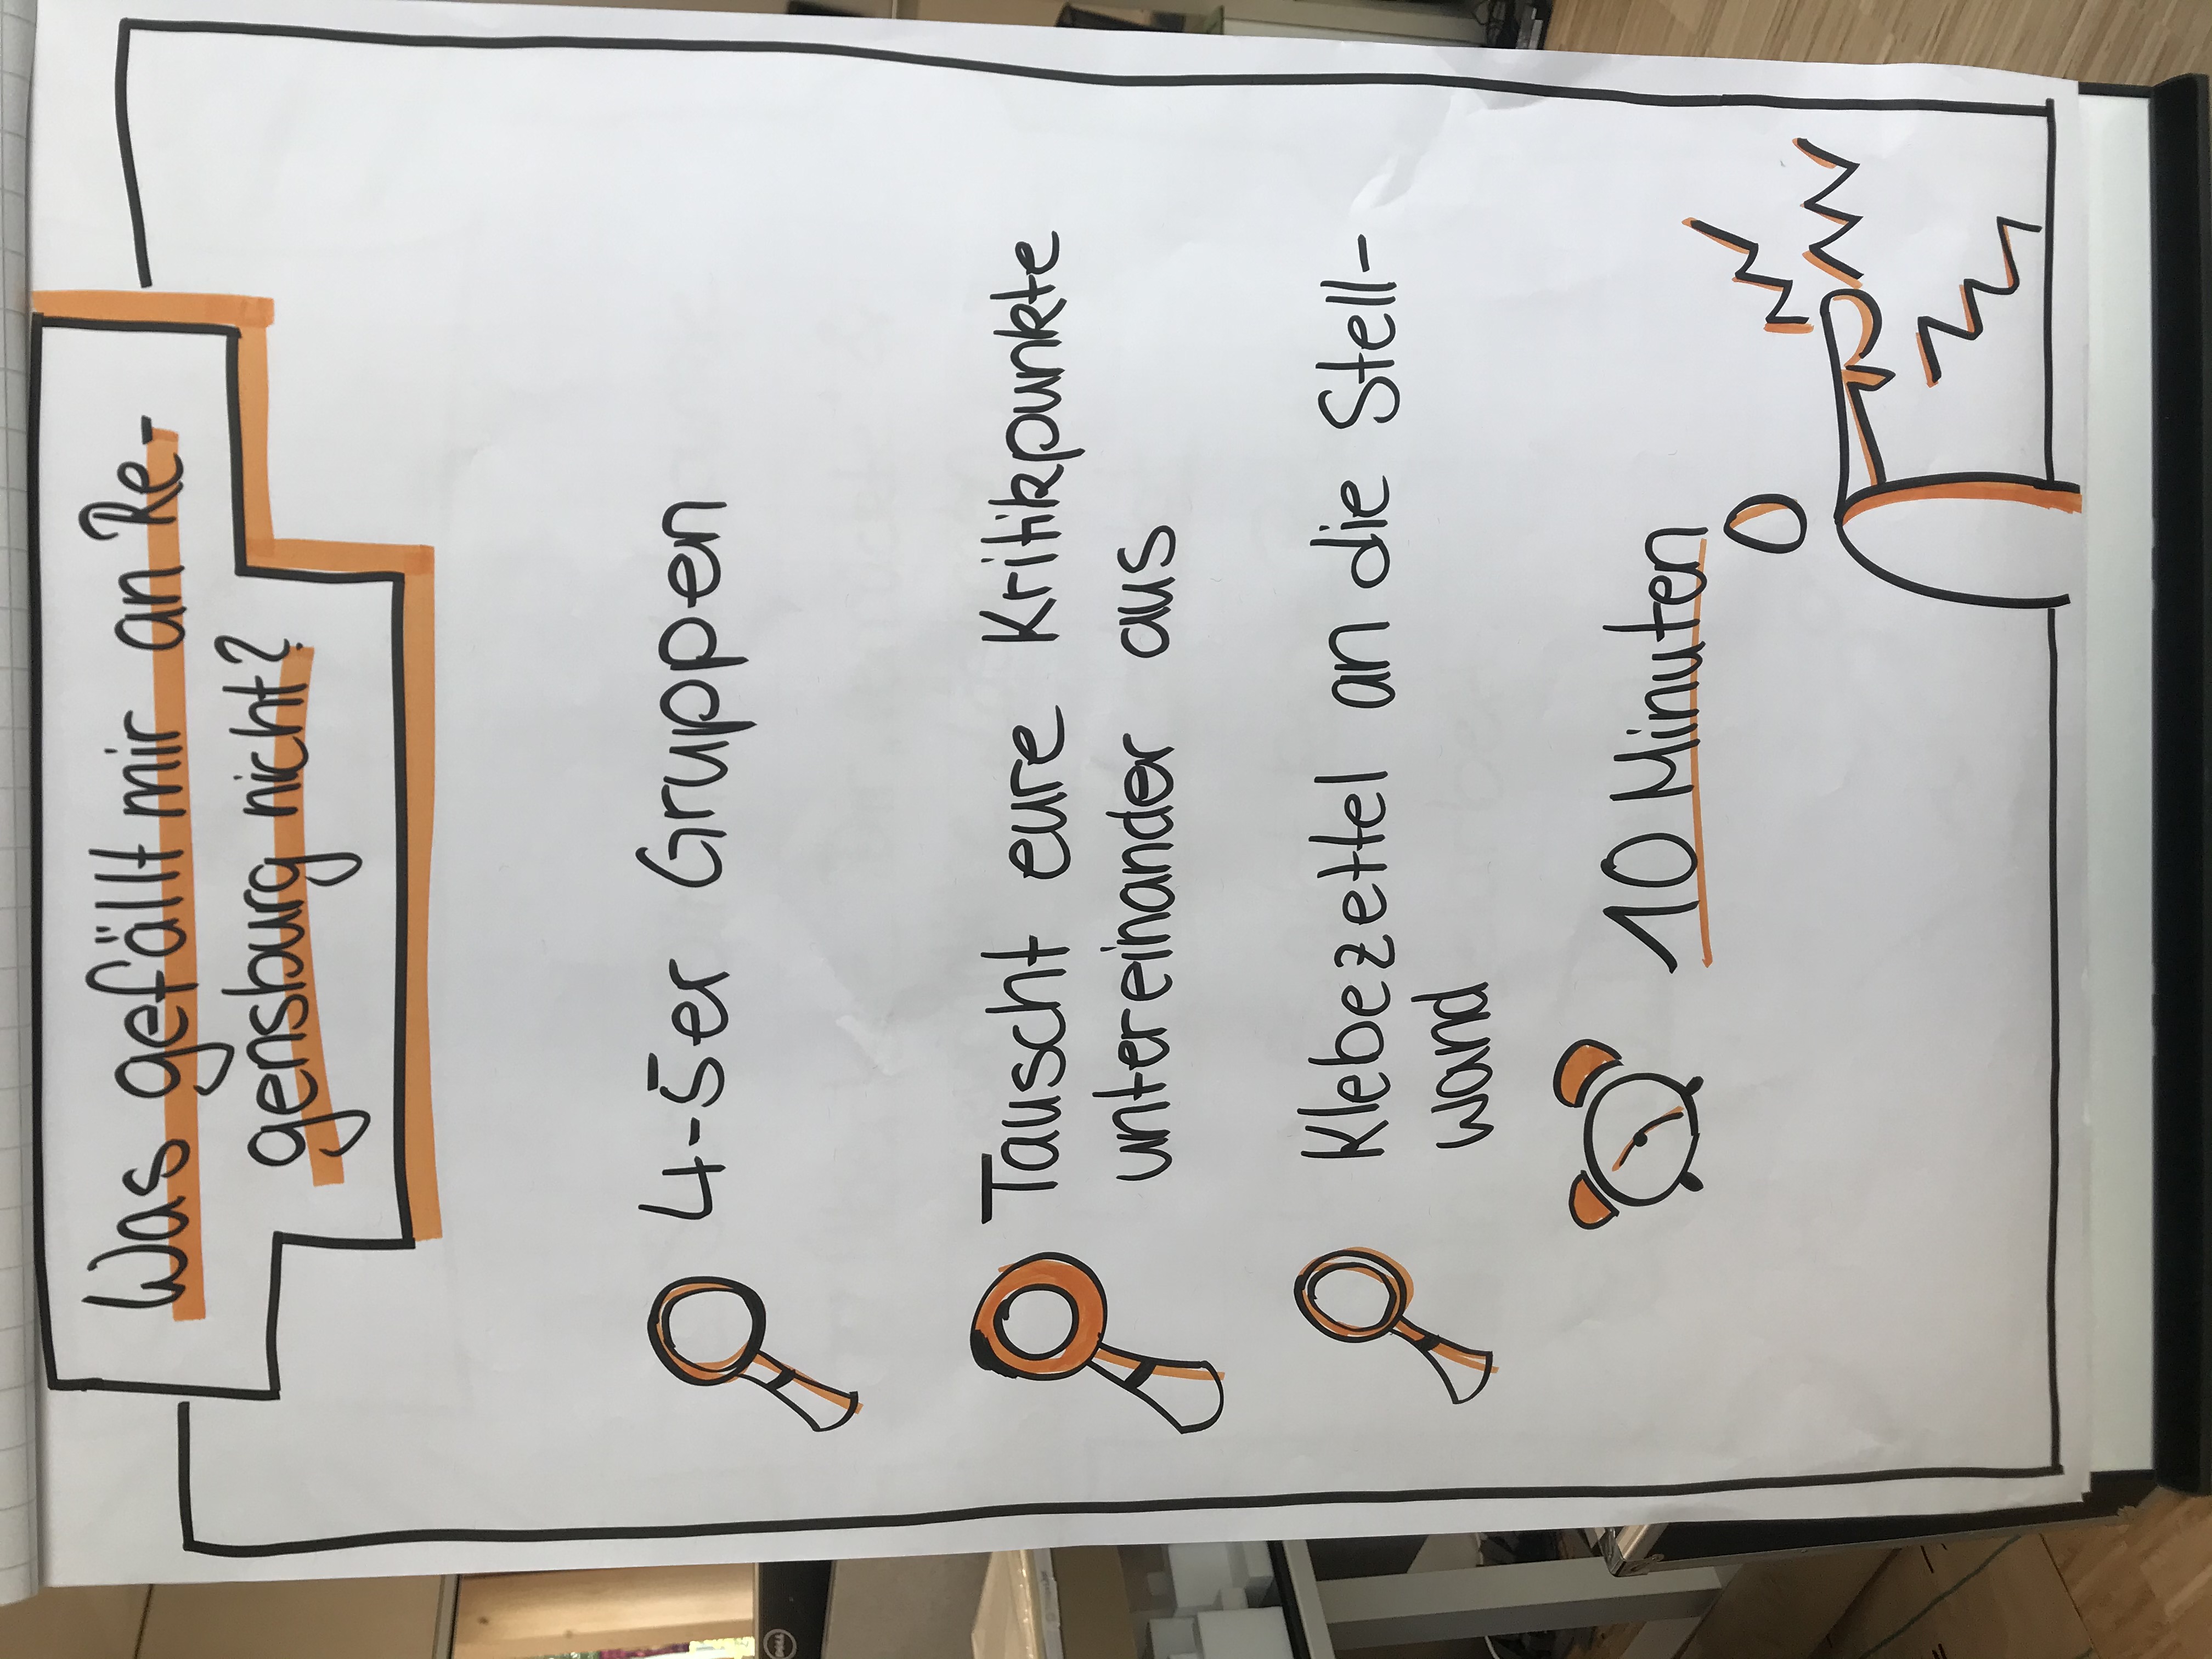 Was gefällt mir an Re-
gensburg nicht?
4-5er Gruppen
Tauscht eure Kritikpunkte
untereinander aus
Klebezettel an die Stell-
wand
10 Minuten
DELL